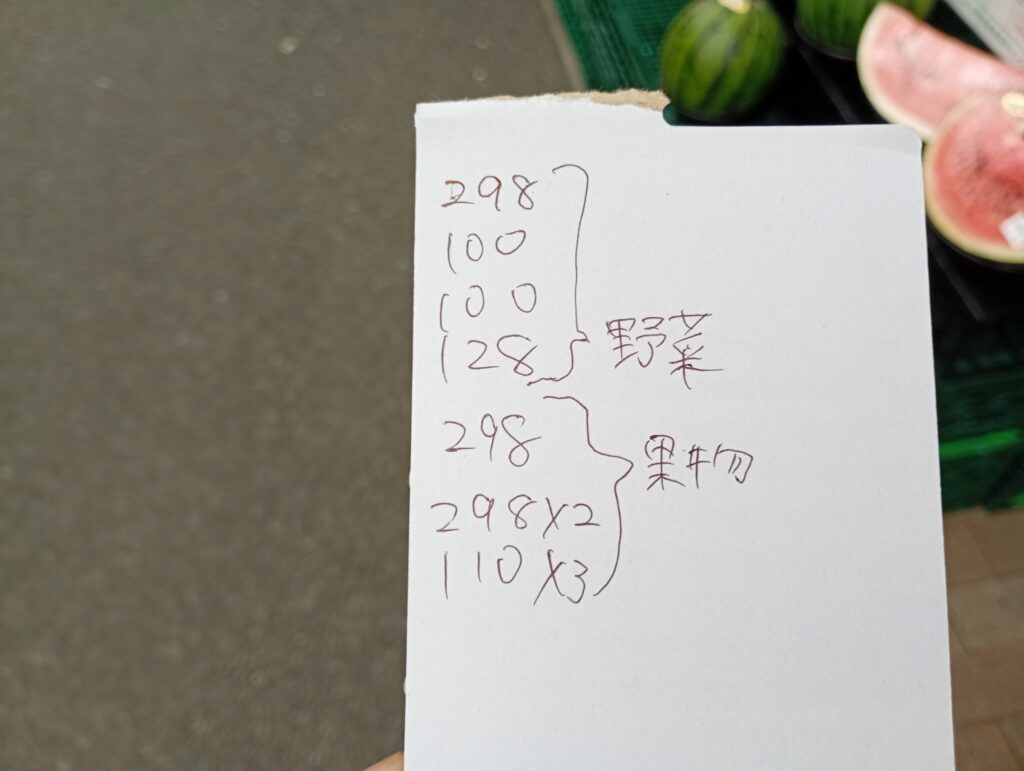 298
100
100
128
野菜
298
果物
298×2
110×3